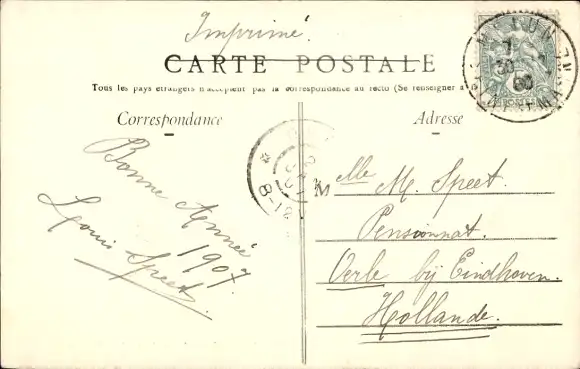 Imprimé.
CARTE POSTALE
Tous les pays étrangers n'acceptent pas la correspondance au recto (Se renseigner à
Correspondance
Adresse
Bonne Année
1907.
Louis Speet.
Mlle M. Speet.
Pensionnat.
Oerle bij Eindhoven.
Hollande.
MELUN